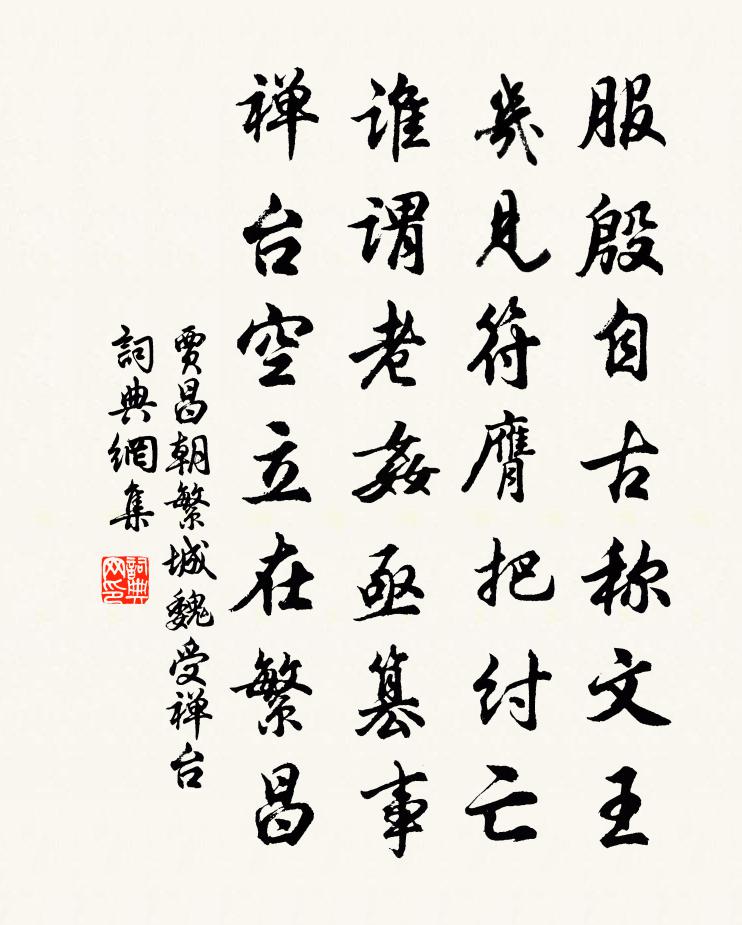 服殷自古称文王
几见符膺把纣亡
谁谓老奸亟篡事
禅台空立在繁昌
賈昌朝繁城魏受禅台
詞典網集
詞典
网印